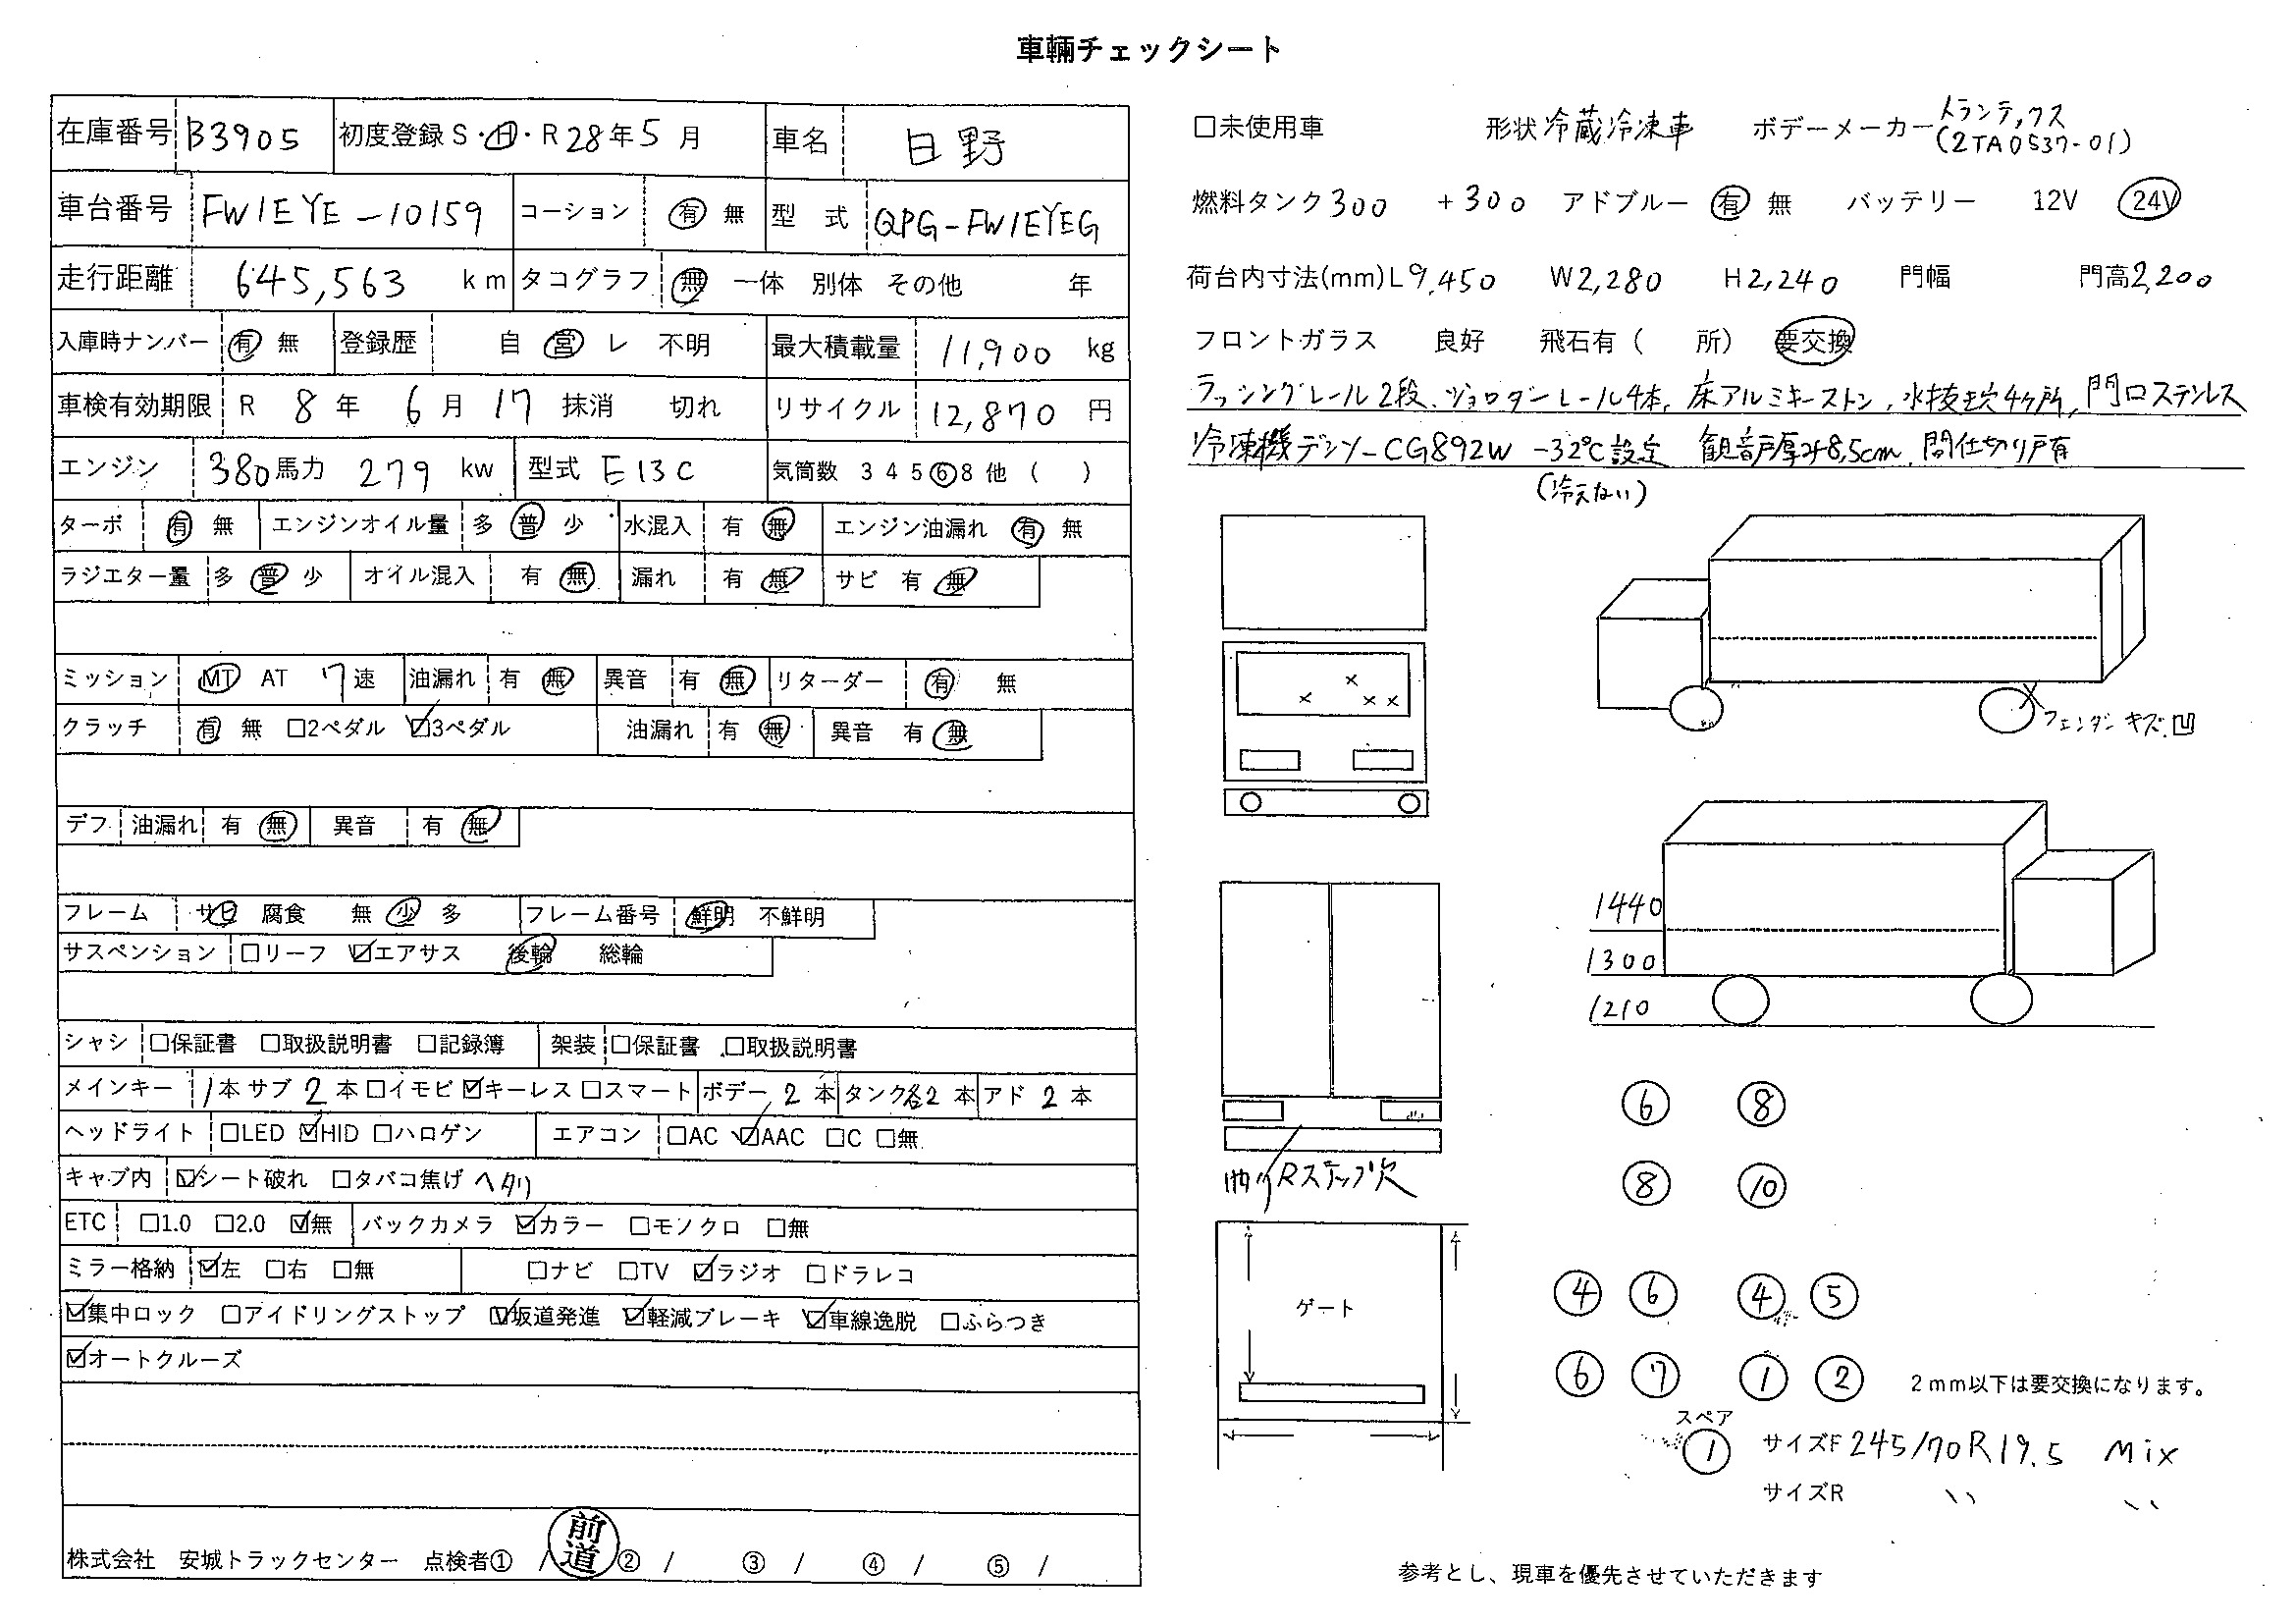 車輛チェックシート
在庫番号 B3905 初度登録 S・H・R 28年 5月 車名 日野
車台番号 FW1EYE-10159 コーション 有 無 型式 QPG-FW1EYEG
走行距離 645,563 km タコグラフ 無 一体 別体 その他 年
入庫時ナンバー 有 無 登録歴 自 営 レ 不明 最大積載量 11,900 kg
車検有効期限 R 8年 6月 17 抹消 切れ リサイクル 12,870 円
エンジン 380馬力 279 kw 型式 E13C 気筒数 3 4 5 6 8 他 ( )
ターボ 有 無 エンジンオイル量 多 普 少 水混入 有 無 エンジン油漏れ 有 無
ラジエター量 多 普 少 オイル混入 有 無 漏れ 有 無 サビ 有 無
ミッション MT AT 7速 油漏れ 有 無 異音 有 無 リターダー 有 無
クラッチ 有 無 □2ペダル ☑3ペダル 油漏れ 有 無 異音 有 無
デフ 油漏れ 有 無 異音 有 無
フレーム サビ 腐食 無 少 多 フレーム番号 鮮明 不鮮明
サスペンション □リーフ ☑エアサス 後輪 総輪
シャシ □保証書 □取扱説明書 □記録簿 架装 □保証書 □取扱説明書
メインキー 1本 サブ 2本 □イモビ ☑キーレス □スマート ボデー 2本 タンク各2本 アド 2本
ヘッドライト □LED ☑HID □ハロゲン エアコン □AC ☑AAC □C □無
キャブ内 ☑シート破れ □タバコ焦げ ヘタリ
ETC □1.0 □2.0 ☑無 バックカメラ ☑カラー □モノクロ □無
ミラー格納 ☑左 □右 □無 □ナビ □TV ☑ラジオ □ドラレコ
☑集中ロック □アイドリングストップ ☑坂道発進 ☑軽減ブレーキ ☑車線逸脱 □ふらつき
☑オートクルーズ
株式会社 安城トラックセンター 点検者① / 前道 ② / ③ / ④ / ⑤ /
□未使用車 形状 冷蔵冷凍車 ボデーメーカー トランテックス
(2TA0537-01)
燃料タンク 300 +300 アドブルー 有 無 バッテリー 12V 24V
荷台内寸法(mm) L9,450 W2,280 H2,240 門幅 門高2,200
フロントガラス 良好 飛石有 ( 所) 要交換
ラッシングレール2段、ジョロダーレール4本、床アルミキーストン、水抜き穴4ヶ所、門口ステンレス
冷凍機デンソーCG892W -32℃設定 観音戸厚み8,5cm、間仕切り戸有
(冷えない)
フェンダーキズ、凹
1440
1300
1210
Rステップ欠
ゲート
⑥ ⑧
⑧ ⑩
④ ⑥ ④ ⑤
⑥ ⑦ ① ② 2mm以下は要交換になります。
スペア
① サイズF 245/70R19.5 Mix
サイズR 〃 〃
参考とし、現車を優先させていただきます